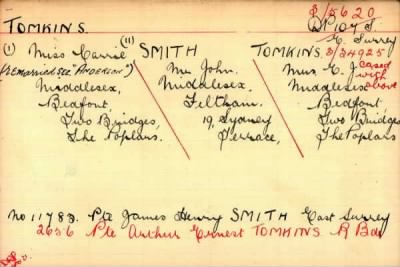 TOMKINS.
P/5620
D/P 107 S.
E. Surrey
(1) Miss Carrie
(11) SMITH
TOMKINS. 3/34925
(Remarried see "ANDERSON")
Mr. John.
Mrs. E. J. Cased with above
Middlesex,
Middlesex.
Middlesex
Bedfont,
Feltham.
Bedfont,
Two Bridges,
19, Sydney
Two Bridges
The Poplars.
Terrace,
The Poplars
No 11783. Pte James Henry SMITH East Surrey
2656 Pte Arthur Ernest TOMKINS R Bde